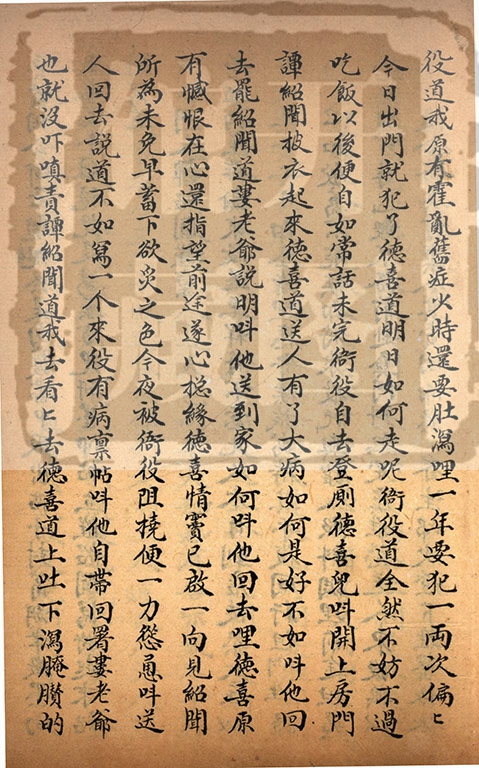 役道我原有霍亂舊症少時還要肚瀉哩一年要犯一両次偏ヒ
今日出門就犯了德喜道明日如何走呢衙役道全然不妨不過
吃飯以後便自如常話未完衙役自去登厠德喜兒呌開上房門
譚紹聞披衣起來德喜道送人有了大病如何是好不如呌他回
去罷紹聞道婁老爺說明呌他送到家如何呌他回去哩德喜原
有憾恨在心還指望前途遂心揔緣德喜情竇已啟一向見紹聞
所為未免早蓄下欲炎之色今夜被衙役阻撓便一力慫恿呌送
人回去說道不如寫一个來役有病禀帖呌他自帶回署婁老爺
也就没吓嗔責譚紹聞道我去看ヒ去德喜道上吐下瀉腌臢的